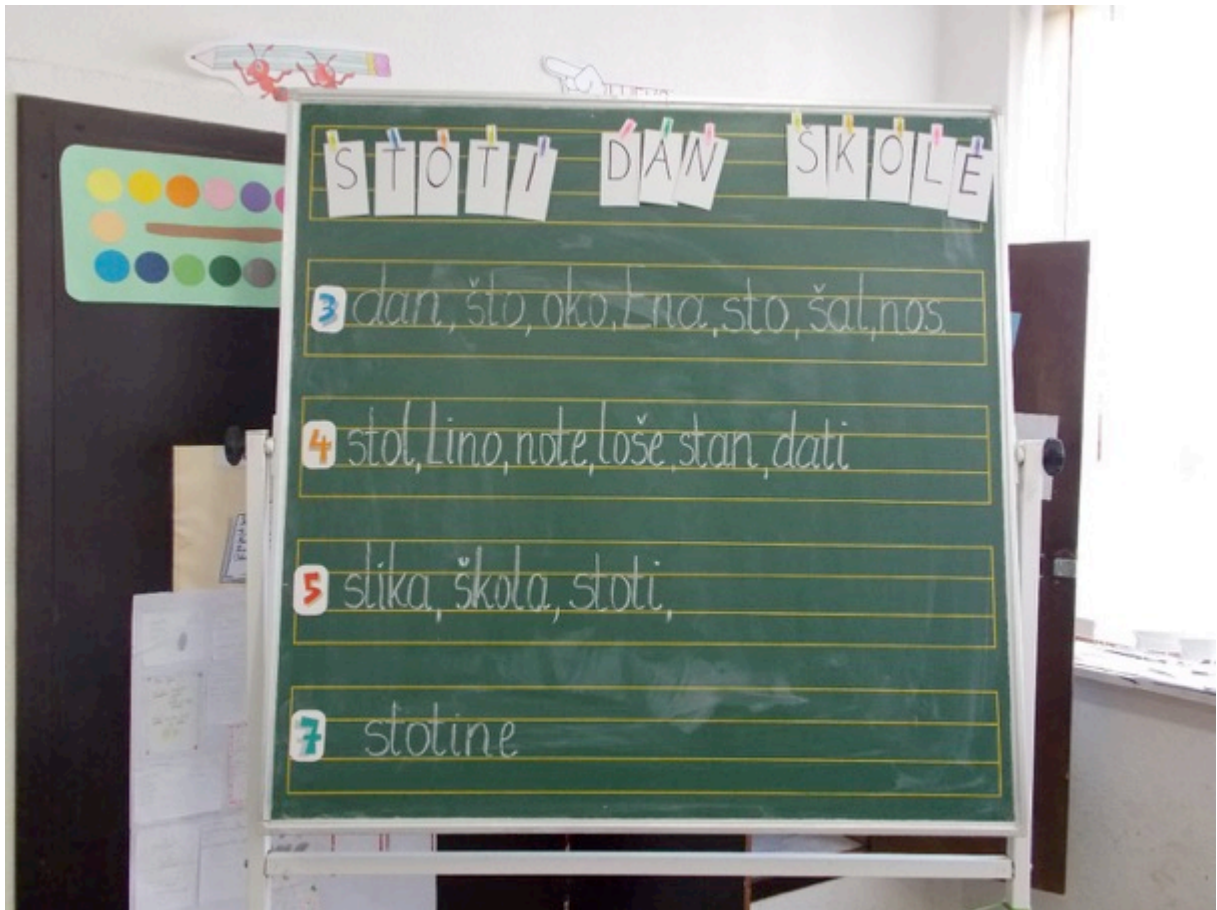 STOTI DAN ŠKOLE
3 dan, što, oko, Ena, sto, šal, nos.
4 stol, Lino, note, loše, stan, dati
5 slika, škola, stoti,
7 stotine